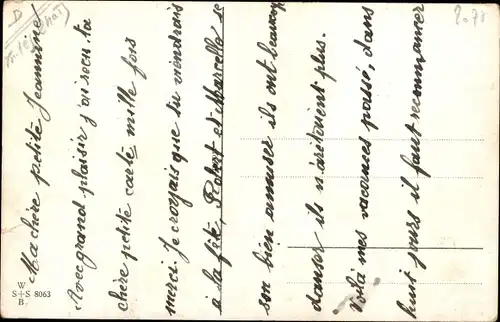 Ma chère petite Jeannine
Avec grand plaisir j'ai reçu ta
chère petite carte mille fois
merci Je croyais que tu viendrais
à la fête, Robert et Marcelle se
son bien amuser ils ont beaucoup
danser ils n'arêtaient plus.
Voilà mes vacances passé, dans
huit jours il faut recommancer
W
S+S 8063
B.
D